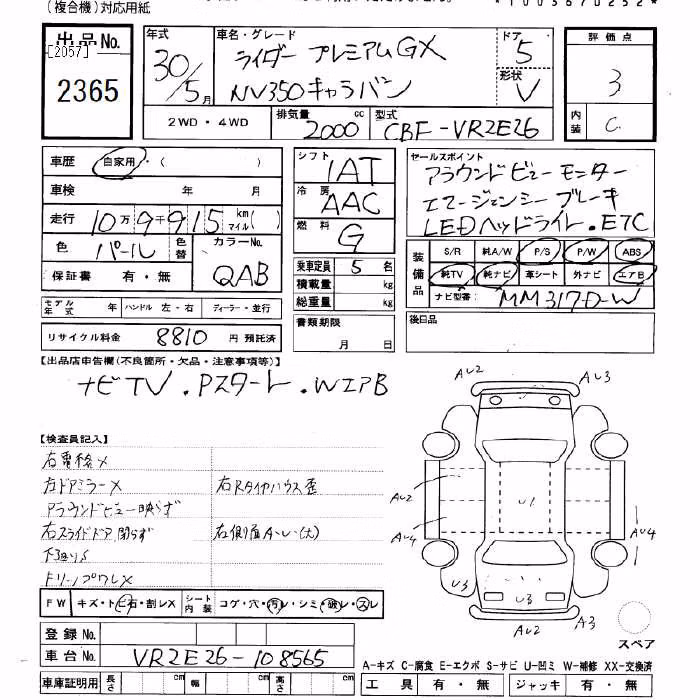 (複合機)対応用紙
*1003670252*
出品No.
[2057]
2365
年式
30/5月
車名・グレード
ライダー プレミアムGX
NV350キャラバン
ドア
5
形状
V
2WD・4WD
排気量
2000 cc
型式
CBF-VR2E26
評価点
3
内装
C
車歴
自家用・( )
車検 年 月
走行 10万9千915 km マイル( )
色 パール 色替
カラーNo.
QAB
保証書 有・無
シフト IAT
冷房 AAC
燃料 G
乗車定員 5 名
積載量 kg
総重量 kg
書類期限
月 日
セールスポイント
アラウンドビューモニター
エマージェンシーブレーキ
LEDヘッドライト.ETC
装備品
S/R 純A/W P/S P/W ABS
純TV 純ナビ 革シート 外ナビ エアB
ナビ型番: MM317D-W
後日品
モデル年式 年 ハンドル 左・右 ディーラー・並行
リサイクル料金 8810 円 預託済
【出品店申告欄(不良箇所・欠品・注意事項等)】
ナビTV.Pスタート.WエアB
【検査員記入】
右電格×
右ドアミラー×
アラウンドビュー映らず
右スライドドア閉らず
下廻りS
右Rタイヤハウス歪
FW キズ・トビ石・割レX
シート内装 コゲ・穴・汚レ・シミ・破レ・スレ
登録No.
車台No. VR2E26-108565
車庫証明用 長さ cm 幅 cm 高さ cm
AU2
AU3
AU2
AU4
U1
AU4
U3
U3
AU2
A3
スペア
A-キズ C-腐食 E-エクボ S-サビ U-凹ミ W-補修 XX-交換済
工具 有・無 ジャッキ 有・無